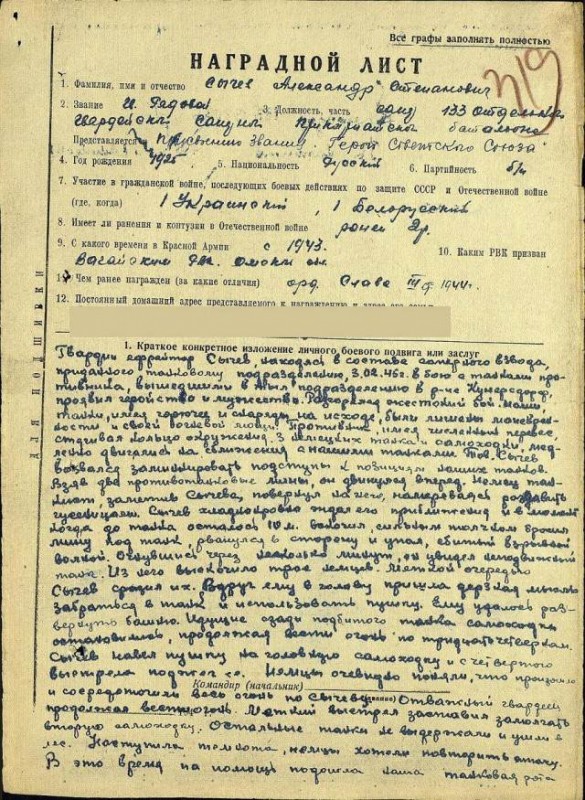 Все графы заполнять полностью
319
НАГРАДНОЙ ЛИСТ
1. Фамилия, имя и отчество Сычев Александр Степанович
2. Звание Рядовой 3. Должность, часть 133 отдельного
гвардейского батальона
Представляется к присвоению звания Герой Советского Союза
4. Год рождения 1925 5. Национальность Русский 6. Партийность б/п
7. Участие в гражданской войне, последующих боевых действиях по защите СССР и Отечественной войне
(где, когда) 1 Украинский, 1 Белорусский
8. Имеет ли ранения и контузии в Отечественной войне ранен
9. С какого времени в Красной Армии с 1943. 10. Каким РВК призван
Вагайским
11. Чем ранее награжден (за какие отличия) орд. Слава III 1944г.
12. Постоянный домашний адрес представляемого к награждению и адрес его семьи
ДЛЯ ПОДШИВКИ
1. Краткое конкретное изложение личного боевого подвига или заслуг
Гвардии ефрейтор Сычев, находясь в составе саперного взвода,
приданного танковому подразделению, 3.02.45г. в бою с танками про-
тивника, вышедшими в тыл подразделению в р-не Кунерсдорф,
проявил геройство и мужество. Разгорелся жестокий бой. Наши
танки, имея горючее и снаряды на исходе, были лишены маневрен-
ности и своей боевой мощи. Противник, имея численный перевес,
стягивал кольцо окружения. 3 немецких танка и самоходки, мед-
ленно двигались на сближение с нашими танками. Тов. Сычев
вызвался заминировать подступы к позициям наших танков.
Взяв две противотанковые мины, он двинулся вперед. Немец. тан-
кист, заметив Сычева, повернул на него, намереваясь раздавить
гусеницами. Сычев хладнокровно ждал его приближения и в момент
когда до танка осталось 10 м. вскочил, сильным толчком бросил
мину под танк, рванулся в сторону и упал, сбитый взрывной
волной. Очнувшись через несколько минут, он увидел неподвижный
танк. Из него выскочило трое немцев. Меткой очередью
Сычев сразил их. Вдруг ему в голову пришла дерзкая мысль
забраться в танк и использовать пушку. Ему удалось раз-
вернуть башню. Идущие сзади подбитого танка самоходки
остановились, продолжая вести огонь по тридцатьчетверкам.
Сычев навел пушку на головную самоходку и с четвертого
выстрела поджег ее. Немцы очевидно поняли, что произошло
Командир (начальник)
и сосредоточили весь огонь по Сычеву. Отважный гвардеец
продолжал вести огонь. Меткий выстрел заставил замолчать
вторую самоходку. Остальные танки не выдержали и ушли в
лес. Наступила темнота, немцы хотели повторить атаку.
В это время на помощь подошла наша танковая рота